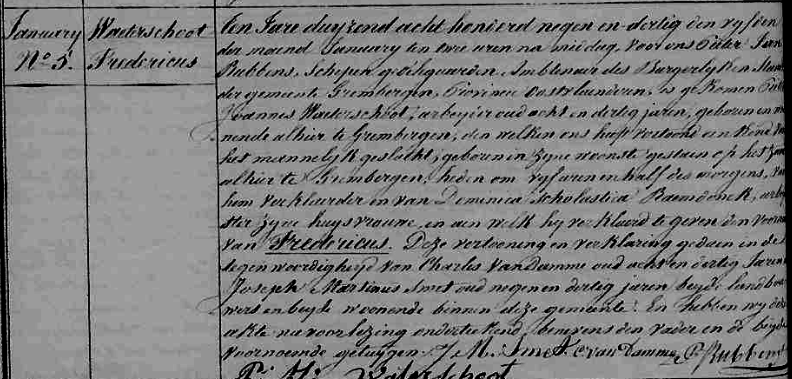 January
N° 5.
Waeterschoot
Fredericus
Ten Jare duyzend acht honderd negen en dertig den vyfden
der maend January ten twee uren na middag, voor ons Pieter Jan
Rubbens, Schepen Ambtenaer des Burgerlyken
der gemeente Grembergen, Provincie Oostvlaenderen, is gekomen
Joannes Waeterschoot, arbeyder oud acht en dertig jaren, geboren en
nende alhier te Grembergen, den welken ons heeft vertoond een kind van
het mannelyk geslacht, geboren in zyne woonste gestaen op het
alhier te Grembergen, heden om vyf uren en half des morgens, van
hem verklaerder en van Dominica Scholastica Raemdonck,
ster zyne huysvrouwe, en aen welk hy verklaerd te geven den voornaem
van Fredericus. Deze vertooning en verklaring gedaen in de
tegenwoordigheyd van Charles Van Damme oud acht en dertig Jaren
Joseph Martinus Smet oud negen en dertig jaren beyde landbou
wers en beyde woonende binnen deze gemeente. En hebben wy deze
akte na voorlezing onderteekend, benevens den vader en de beyde
voornoemde getuygen. J M Smet C van Damme P. Rubbens
Waterschoot